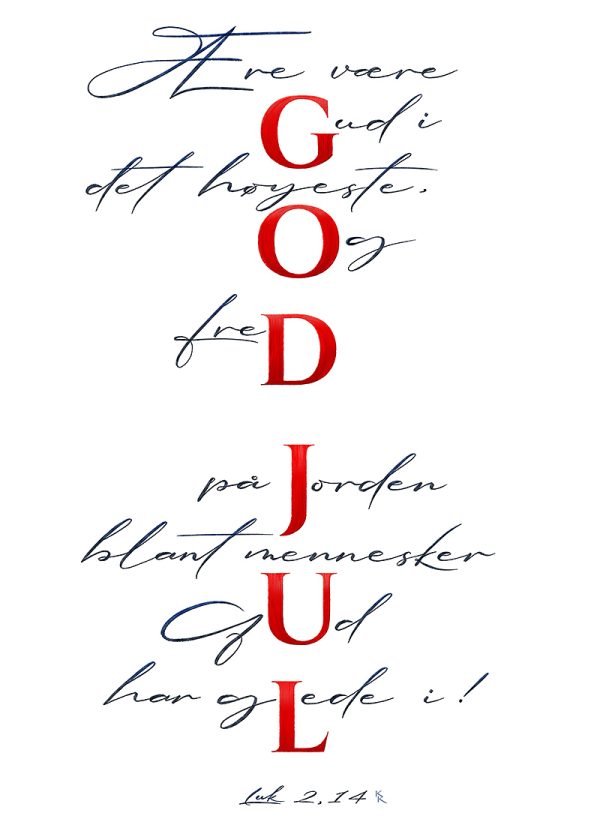 Ære være
Gud i
det høyeste,
Og
freD
på Jorden
blant mennesker
GUd
har gLede i!
Luk 2,14 KR